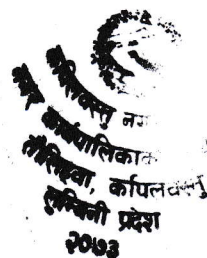 कपिलवस्तु नग
नगर कार्यपालिकाक
तौलिहवा, कपिलवस्तु
लुम्बिनी प्रदेश
२०७३